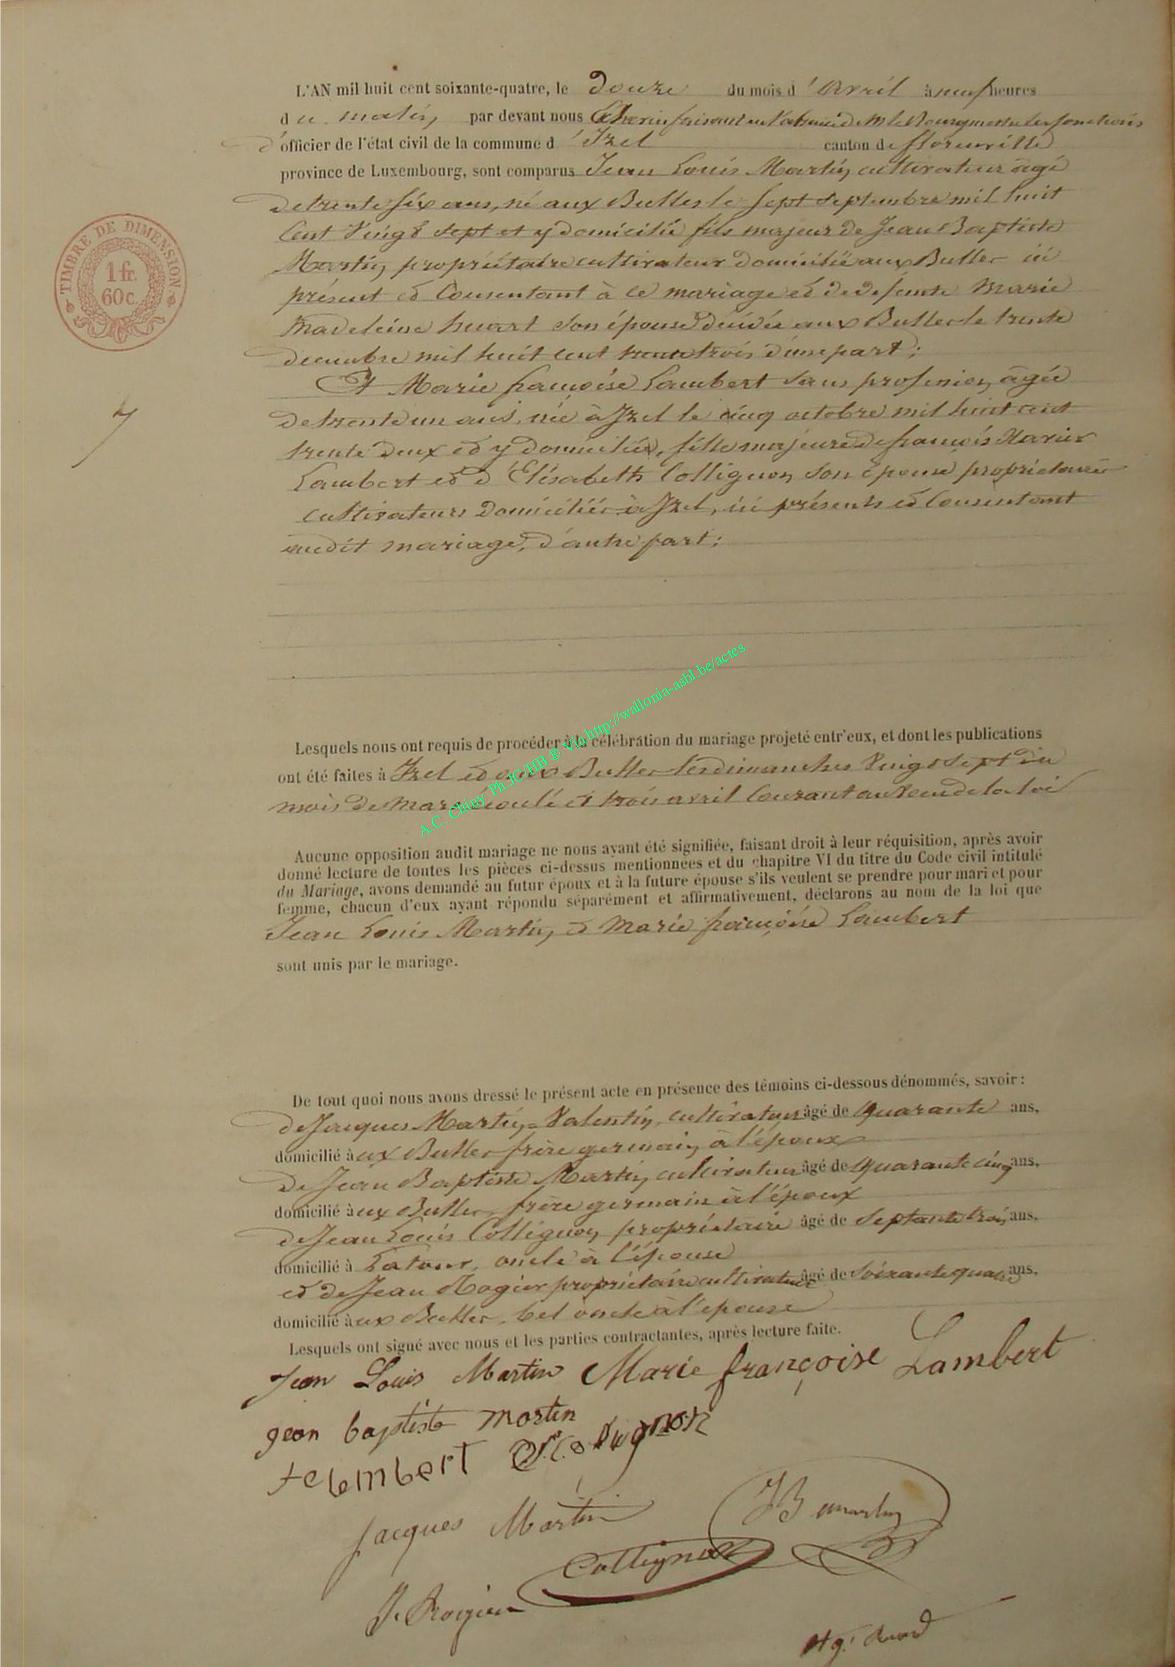 L'AN mil huit cent soixante-quatre, le douze du mois d'Avril à neuf heures
du matin, par devant nous Echevin faisant en l'absence de M. le Bourgmestre les fonctions
d'officier de l'état civil de la commune d'Izel canton de florenville
province de Luxembourg, sont comparus Jean Louis Martin cultivateur âgé
de trente six ans, né aux Bulles le sept septembre mil huit
cent vingt sept et y domicilié fils majeur de Jean Baptiste
Martin, propriétaire cultivateur domicilié aux Bulles ici
présent et consentant à ce mariage et de defunte Marie
Madeleine huart son épouse décédée aux Bulles le trente
decembre mil huit cent trente trois d'une part;
Et Marie françoise Lambert sans profession, âgée
de trente un ans, née à Izel le cinq octobre mil huit cent
trente deux et y domiciliée, fille majeure de françois Xavier
Lambert et d'Elisabeth Collignon son épouse propriétaires
cultivateurs domiciliés à Izel, ici présents et consentant
audit mariage, d'autre part;
TIMBRE DE DIMENSION
1 fr.
60 c.
7
Lesquels nous ont requis de procéder à la célébration du mariage projeté entr'eux, et dont les publications
ont été faites à Izel et aux Bulles les dimanches vingt sept du
mois de mars écoulé et trois avril courant au vœu de la loi
A.C. Chiny Ph.JC HB @ Via http://wallonia-asbl.be/actes
Aucune opposition audit mariage ne nous ayant été signifiée, faisant droit à leur réquisition, après avoir
donné lecture de toutes les pièces ci-dessus mentionnées et du chapitre VI du titre du Code civil intitulé
du Mariage, avons demandé au futur époux et à la future épouse s'ils veulent se prendre pour mari et pour
femme, chacun d'eux ayant répondu séparément et affirmativement, déclarons au nom de la loi que
Jean Louis Martin, et Marie françoise Lambert
sont unis par le mariage.
De tout quoi nous avons dressé le présent acte en présence des témoins ci-dessous dénommés, savoir:
de Jacques Martin-Valentin, cultivateur âgé de quarante ans,
domicilié aux Bulles frère germain, à l'époux
de Jean Baptiste Martin, cultivateur âgé de quarante cinq ans,
domicilié aux Bulles, frère germain à l'époux
de Jean Louis Collignon, propriétaire âgé de septante trois ans,
domicilié à Latour, oncle à l'épouse
et de Jean Rogier propriétaire cultivateur âgé de soixante quatre ans,
domicilié aux Bulles, bel oncle à l'épouse
Lesquels ont signé avec nous et les parties contractantes, après lecture faite.
Jean Louis Martin Marie françoise Lambert
jean baptiste martin
lembert Colignon
Jacques Martin JB martin
Collignon
J. Rogier